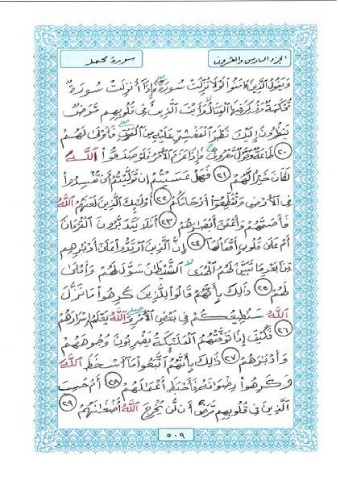 الجزء السادس والعشرون
سورة محمد
وَيَقُولُ الَّذِينَ ءَامَنُوا لَوْلَا نُزِّلَتْ سُورَةٌ فَإِذَا أُنزِلَتْ سُورَةٌ
مُّحْكَمَةٌ وَذُكِرَ فِيهَا الْقِتَالُ رَأَيْتَ الَّذِينَ فِي قُلُوبِهِم مَّرَضٌ
يَنظُرُونَ إِلَيْكَ نَظَرَ الْمَغْشِيِّ عَلَيْهِ مِنَ الْمَوْتِ فَأَوْلَى لَهُمْ
٢٠ طَاعَةٌ وَقَوْلٌ مَّعْرُوفٌ فَإِذَا عَزَمَ الْأَمْرُ فَلَوْ صَدَقُوا اللَّهَ
لَكَانَ خَيْرًا لَّهُمْ ٢١ فَهَلْ عَسَيْتُمْ إِن تَوَلَّيْتُمْ أَن تُفْسِدُوا
فِي الْأَرْضِ وَتُقَطِّعُوا أَرْحَامَكُمْ ٢٢ أُولَٰئِكَ الَّذِينَ لَعَنَهُمُ اللَّهُ
فَأَصَمَّهُمْ وَأَعْمَىٰ أَبْصَارَهُمْ ٢٣ أَفَلَا يَتَدَبَّرُونَ الْقُرْءَانَ
أَمْ عَلَىٰ قُلُوبٍ أَقْفَالُهَا ٢٤ إِنَّ الَّذِينَ ارْتَدُّوا عَلَىٰ أَدْبَارِهِم
مِّن بَعْدِ مَا تَبَيَّنَ لَهُمُ الْهُدَى الشَّيْطَانُ سَوَّلَ لَهُمْ وَأَمْلَىٰ
لَهُمْ ٢٥ ذَٰلِكَ بِأَنَّهُمْ قَالُوا لِلَّذِينَ كَرِهُوا مَا نَزَّلَ
اللَّهُ سَنُطِيعُكُمْ فِي بَعْضِ الْأَمْرِ وَاللَّهُ يَعْلَمُ إِسْرَارَهُمْ
٢٦ فَكَيْفَ إِذَا تَوَفَّتْهُمُ الْمَلَٰئِكَةُ يَضْرِبُونَ وُجُوهَهُمْ
وَأَدْبَارَهُمْ ٢٧ ذَٰلِكَ بِأَنَّهُمُ اتَّبَعُوا مَا أَسْخَطَ اللَّهَ
وَكَرِهُوا رِضْوَانَهُ فَأَحْبَطَ أَعْمَالَهُمْ ٢٨ أَمْ حَسِبَ
الَّذِينَ فِي قُلُوبِهِم مَّرَضٌ أَن لَّن يُخْرِجَ اللَّهُ أَضْغَانَهُمْ ٢٩
٥٠٩